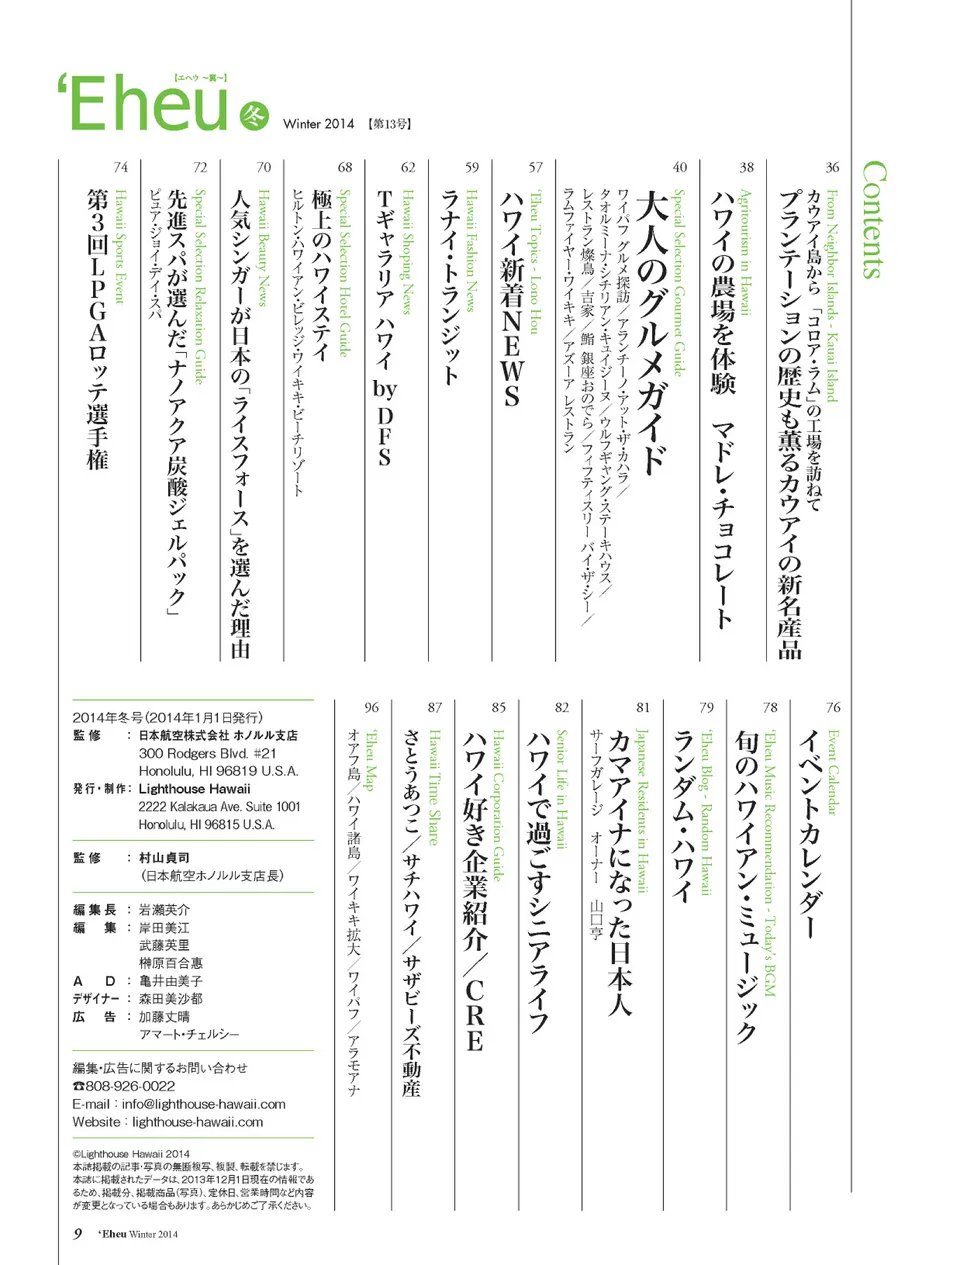 【エヘウ ～翼～】
‘Eheu 冬
Winter 2014 【第13号】
Contents
36
From Neighbor Islands - Kauai Island
カウアイ島から 「コロア・ラム」の工場を訪ねて
プランテーションの歴史も薫るカウアイの新名産品
38
Agritourism in Hawaii
ハワイの農場を体験 マドレ・チョコレート
40
Special Selection Gourmet Guide
大人のグルメガイド
ワイパフ グルメ探訪／アランチーノ・アット・ザ・カハラ／
タオルミーナ・シチリアン・キュイジーヌ／ウルフギャング・ステーキハウス／
レストラン燦鳥／吉家／鮨 銀座おのでら／フィフティスリー バイ・ザ・シー／
ラムファイヤー・ワイキキ／アズーア レストラン
57
‘Eheu Topics - Lono Hou
ハワイ新着NEWS
59
Hawaii Fashion News
ラナイ・トランジット
62
Hawaii Shoping News
Tギャラリア ハワイ by DFS
68
Special Selection Hotel Guide
極上のハワイステイ
ヒルトン・ハワイアン・ビレッジ・ワイキキ・ビーチリゾート
70
Hawaii Beauty News
人気シンガーが日本の「ライスフォース」を選んだ理由
72
Special Selection Relaxation Guide
先進スパが選んだ「ナノアクア炭酸ジェルパック」
ピュア・ジョイ・デイ・スパ
74
Hawaii Sports Event
第3回LPGAロッテ選手権
76
Event Calendar
イベントカレンダー
78
‘Eheu Music Recommendation - Today's BGM
旬のハワイアン・ミュージック
79
‘Eheu Blog - Random Hawaii
ランダム・ハワイ
81
Japanese Residents in Hawaii
カマアイナになった日本人
サーフガレージ オーナー 山口亨
82
Senior Life in Hawaii
ハワイで過ごすシニアライフ
85
Hawaii Corporation Guide
ハワイ好き企業紹介／CRE
87
Hawaii Time Share
さとうあつこ／サチハワイ／サザビーズ不動産
96
‘Eheu Map
オアフ島／ハワイ諸島／ワイキキ拡大／ワイパフ／アラモアナ
2014年冬号（2014年1月1日発行）
監修 ： 日本航空株式会社 ホノルル支店
300 Rodgers Blvd. #21
Honolulu, HI 96819 U.S.A.
発行・制作： Lighthouse Hawaii
2222 Kalakaua Ave. Suite 1001
Honolulu, HI 96815 U.S.A.
監修 ： 村山貞司
（日本航空ホノルル支店長）
編集長 ： 岩瀬英介
編集 ： 岸田美江
武藤英里
榊原百合恵
AD ： 亀井由美子
デザイナー ： 森田美沙都
広告 ： 加藤丈晴
アマート・チェルシー
編集・広告に関するお問い合わせ
☎808-926-0022
E-mail：info@lighthouse-hawaii.com
Website：lighthouse-hawaii.com
©Lighthouse Hawaii 2014
本誌掲載の記事・写真の無断複写、複製、転載を禁じます。
本誌に掲載されたデータは、2013年12月1日現在の情報であ
るため、掲載分、掲載商品（写真）、定休日、営業時間など内容
が変更となっている場合もあります。あらかじめご了承ください。
9 ‘Eheu Winter 2014